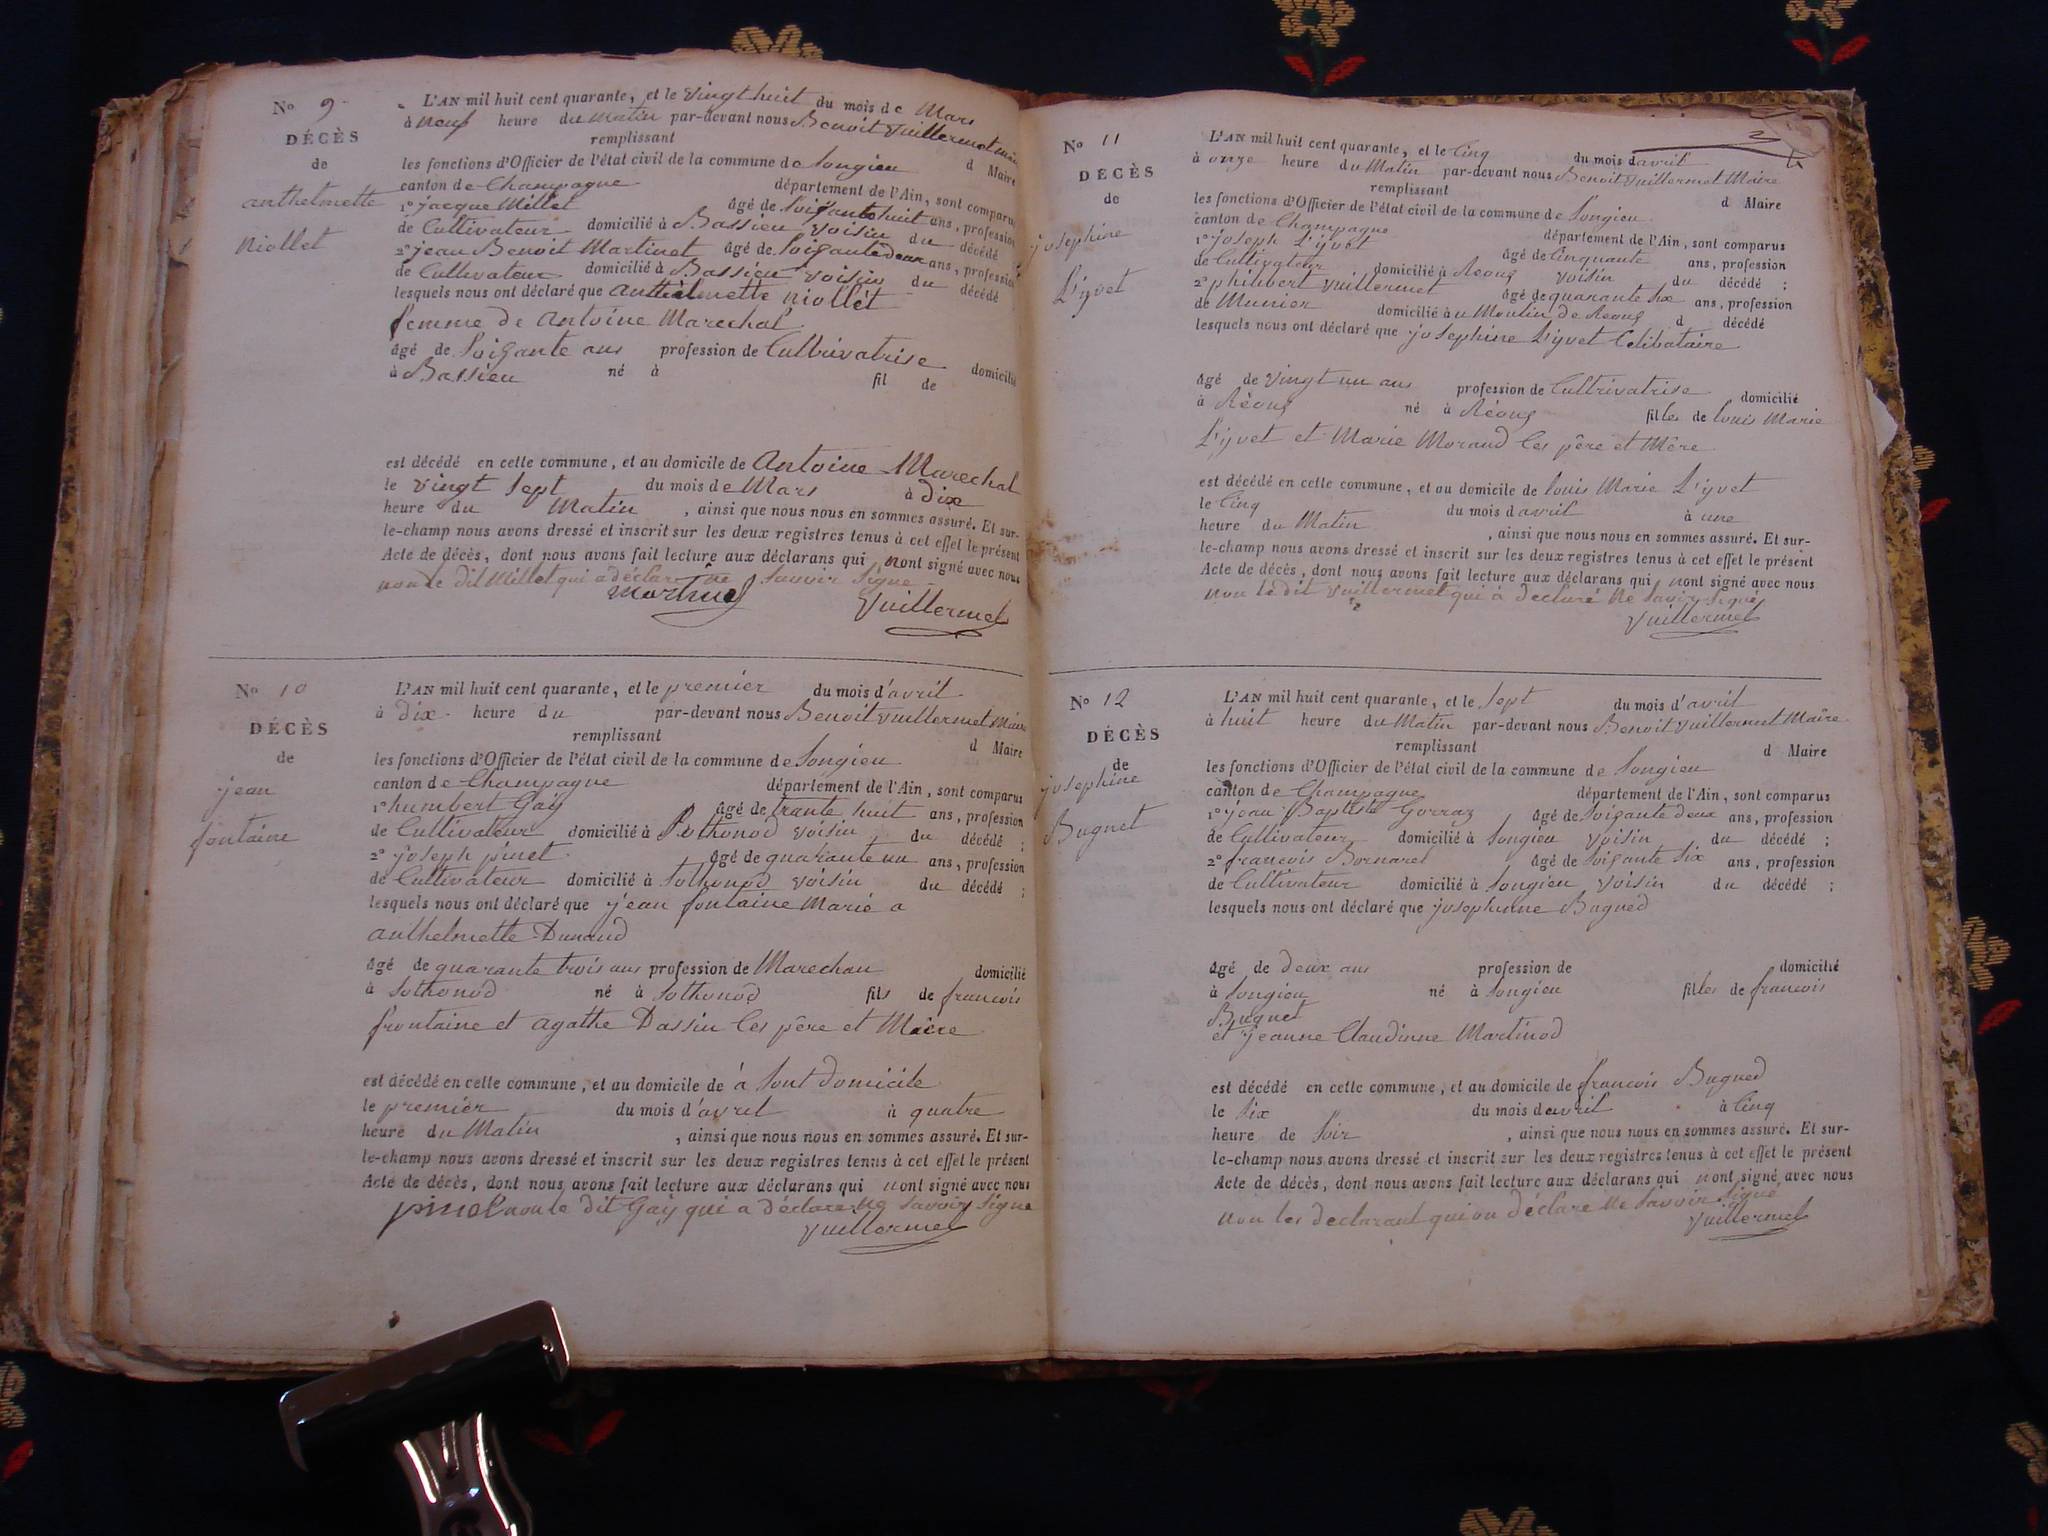 N° 9
DÉCÈS
de
anthelmette
niollet
L'AN mil huit cent quarante, et le vingt huit du mois de Mars
à neuf heure du matin par-devant nous Benoit Vuillermet maire
remplissant
les fonctions d'Officier de l'état civil de la commune de Songieu d Maire
canton de Champagne département de l'Ain, sont comparus
1° jacque Millet âgé de soixante huit ans, profession
de Cultivateur domicilié à Bassieu voisin du décédé
2° jean Benoit Martinet âgé de soixante deux ans, profession
de Cultivateur domicilié à Bassieu voisin du décédé
lesquels nous ont déclaré que anthelmette niollet
femme de antoine Marechal
âgé de soixante ans profession de Cultivatrise domicilié
à Bassieu né à fil de
est décédé en cette commune, et au domicile de antoine Marechal
le vingt sept du mois de Mars à dix
heure du Matin , ainsi que nous nous en sommes assuré. Et sur-
le-champ nous avons dressé et inscrit sur les deux registres tenus à cet effet le présent
Acte de décès, dont nous avons fait lecture aux déclarans qui nont signé avec nous
non le dit Millet qui a déclaré ne savoir signe
Vuillermet
N° 10
DÉCÈS
de
jean
fontaine
L'AN mil huit cent quarante, et le premier du mois d'avril
à dix heure du par-devant nous Benoit Vuillermet Maire
remplissant
les fonctions d'Officier de l'état civil de la commune de Songieu d Maire
canton de Champagne département de l'Ain, sont comparus
1° humbert Gay âgé de trante huit ans, profession
de Cultivateur domicilié à Sothonod voisin du décédé ;
2° joseph pinet âgé de quarante un ans, profession
de Cultivateur domicilié à Sothonod voisin du décédé ;
lesquels nous ont déclaré que jean fontaine Marié a
anthelmette Dunand
âgé de quarante trois ans profession de Marechau domicilié
à Sothonod né à Sothonod fils de francois
frontaine et agathe Dassin les père et Maire
est décédé en cette commune, et au domicile de à sont domicile
le premier du mois d'avril à quatre
heure du Matin , ainsi que nous nous en sommes assuré. Et sur-
le-champ nous avons dressé et inscrit sur les deux registres tenus à cet effet le présent
Acte de décès, dont nous avons fait lecture aux déclarans qui nont signé avec nous
pinet non le dit Gay qui a déclare ne savoir signe
Vuillermet
N° 11
DÉCÈS
de
josephine
Lyvet
L'AN mil huit cent quarante, et le Cinq du mois d avril
à onze heure du Matin par-devant nous Benoit Vuillermet Maire
remplissant
les fonctions d'Officier de l'état civil de la commune de Songieu d Maire
canton de Champagne département de l'Ain, sont comparus
1° joseph Lyvet âgé de Cinquante ans, profession
de Cultivateur domicilié à voisin du décédé ;
2° philibert Vuillermet âgé de quarante six ans, profession
de Munier domicilié à u Moulin de d décédé
lesquels nous ont déclaré que josephine Lyvet Celibataire
âgé de vingt un ans profession de Cultivatrise domicilié
à né à fille de louis Marie
Lyvet et Marie Morand les père et Mère
est décédé en cette commune, et au domicile de louis Marie Lyvet
le Cinq du mois d avril à une
heure du Matin , ainsi que nous nous en sommes assuré. Et sur-
le-champ nous avons dressé et inscrit sur les deux registres tenus à cet effet le présent
Acte de décès, dont nous avons fait lecture aux déclarans qui nont signé avec nous
non le dit Vuillermet qui à declaré ne savoir signé
Vuillermet
N° 12
DÉCÈS
de
josephine
Buguet
L'AN mil huit cent quarante, et le sept du mois d'avril
à huit heure du Matin par-devant nous Benoit Vuillermet Maire
remplissant
les fonctions d'Officier de l'état civil de la commune de Songieu d Maire
canton de Champagne département de l'Ain, sont comparus
1° jean Baptiste Gorraz âgé de soixante deux ans, profession
de Cultivateur domicilié à Songieu voisin du décédé ;
2° francois Bornarel âgé de soixante six ans, profession
de Cultivateur domicilié à Songieu voisin du décédé ;
lesquels nous ont déclaré que josephinne Bugued
âgé de deux ans profession de domicilié
à Songieu né à Songieu fille de francois
Buguet
et jeanne Claudinne Martinod
est décédé en cette commune, et au domicile de francois Bugued
le six du mois d avril à Cinq
heure de soir , ainsi que nous nous en sommes assuré. Et sur-
le-champ nous avons dressé et inscrit sur les deux registres tenus à cet effet le présent
Acte de décès, dont nous avons fait lecture aux déclarans qui nont signé avec nous
non les declarant qui on déclare ne savoir signé
Vuillermet